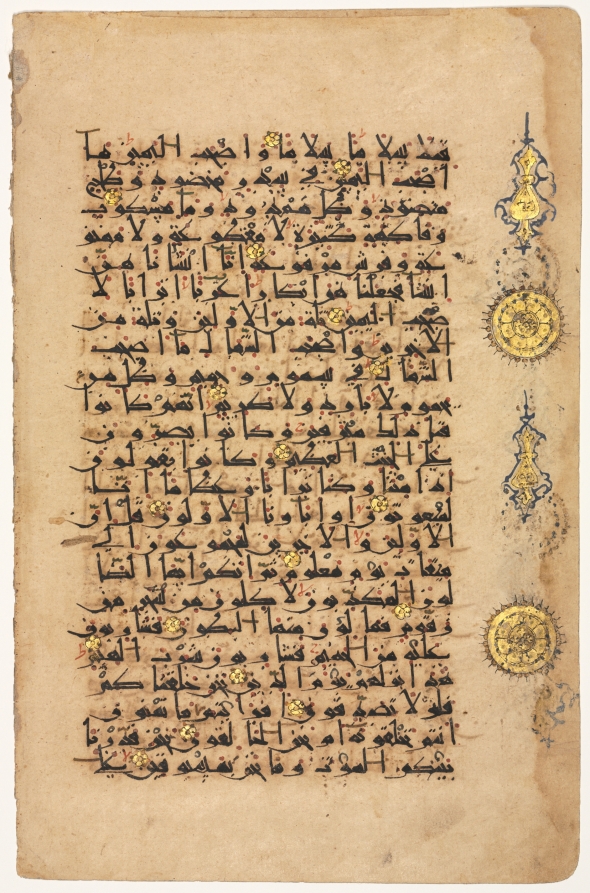 قيلا سلاما سلاما واصحب اليمين ما
اصحب اليمين في سدر مخضود وطلح
منضود وظل ممدود وما مسكوب
وفاكهة كثيرة لا مقطوعة ولا ممنو
عة وفرش مرفوعة انا انشانا هن
انشا فجعلنا هن ابكارا عربا اترابا لا
صحب اليمين ثلة من الاولين وثلة من
الاخرين واصحب الشمال ما اصحب
الشمال في سموم وحميم وظل من
يحموم لا بارد ولا كريم انهم كانوا
قبل ذلك مترفين وكانوا يصرون
على الحنث العظيم وكانوا يقولون
ائذا متنا وكنا ترابا وعظاما ائنا
لمبعوثون او اباونا الاولون قل ان
الاولين والاخرين لمجموعون الى
ميقات يوم معلوم ثم انكم ايها الضا
لون المكذبون لاكلون من شجر من
زقوم فمالون منها البطون فشاربون
عليه من الحميم فشاربون شرب الهيم
هذا نزلهم يوم الدين نحن خلقناكم
فلولا تصدقون افرايتم ما تمنون
اانتم تخلقونه ام نحن الخالقون نحن قدرنا
بينكم الموت وما نحن بمسبوقين على